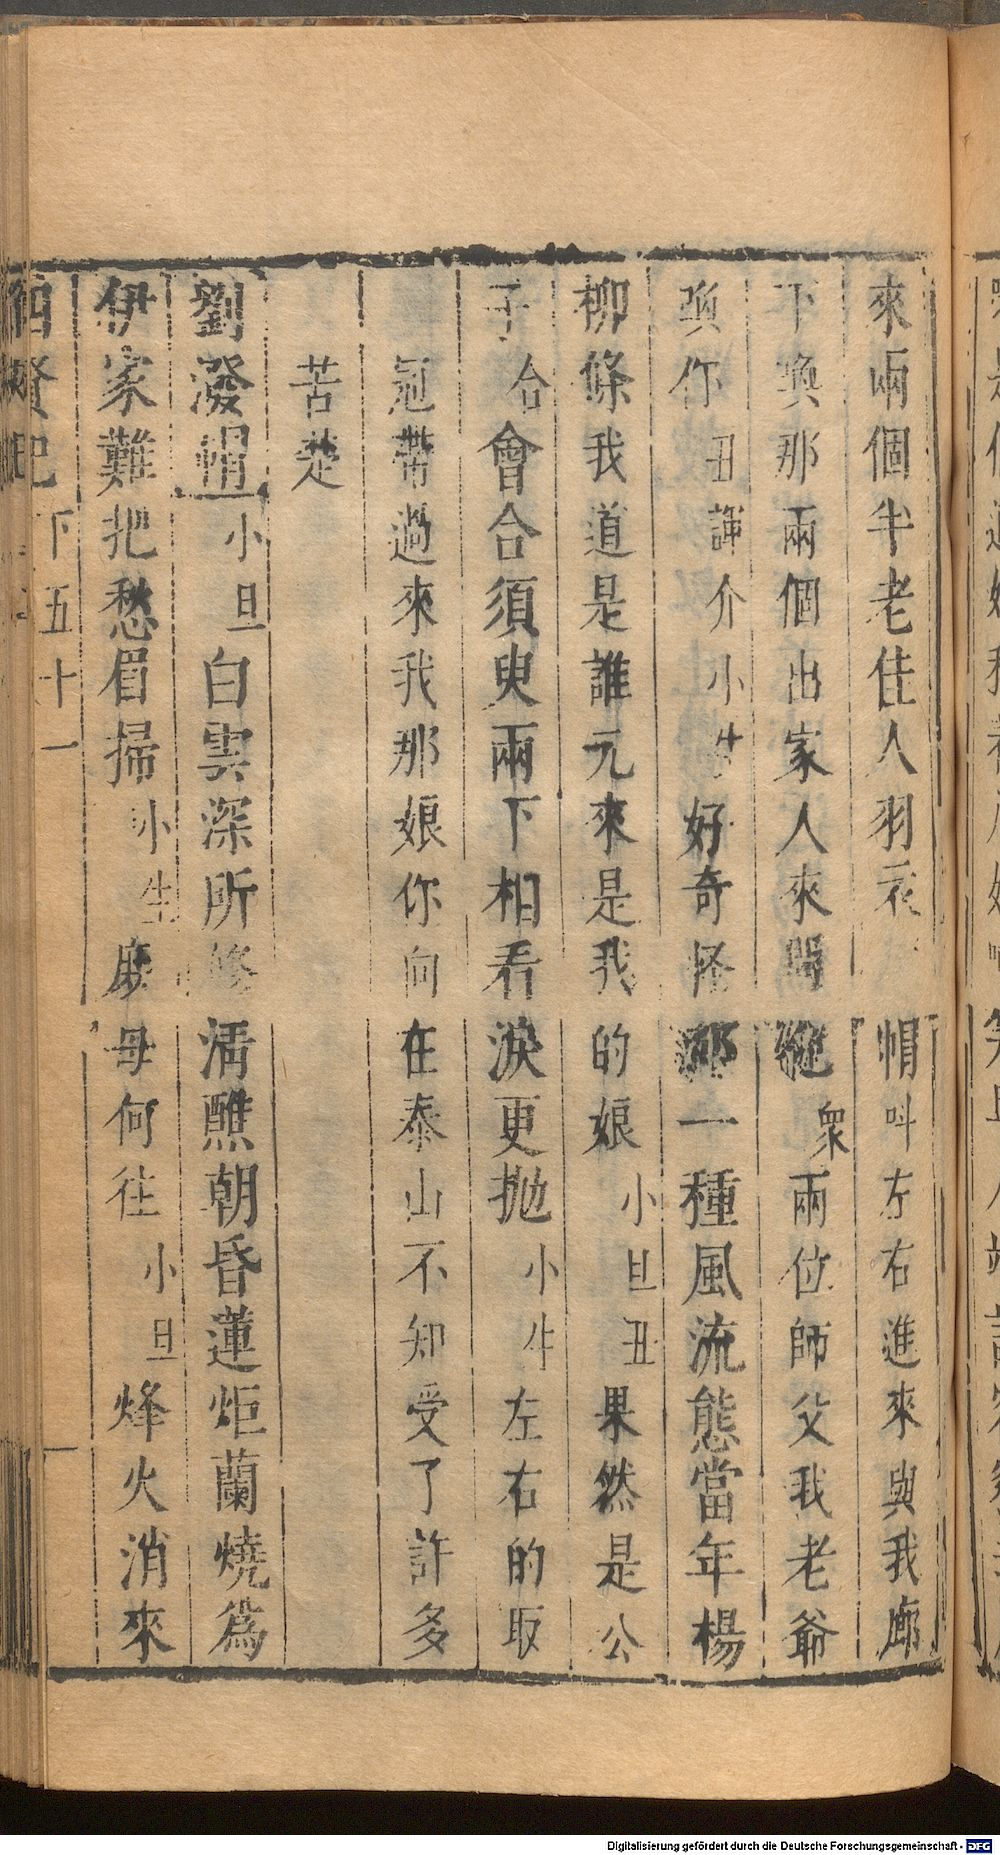 來兩個半老佳人羽衣帽叫左右進來與我廊
下喚那兩個出家人來問他衆兩位師父我老爺
喚你丑諢介小生好奇怪那一種風流態當年楊
柳條我道是誰元來是我的娘小旦丑果然是公
子合會合須臾兩下相看淚更拋小生左右的取
冠帶過來我那娘你向在泰山不知受了許多
苦楚
劉潑帽小旦白雲深所修清醮朝昏蓮炬蘭燒為
伊家難把愁眉掃小生嫲母何往小旦烽火消來
四賢記 下五十一
Digitalisierung gefördert durch die Deutsche Forschungsgemeinschaft - DFG